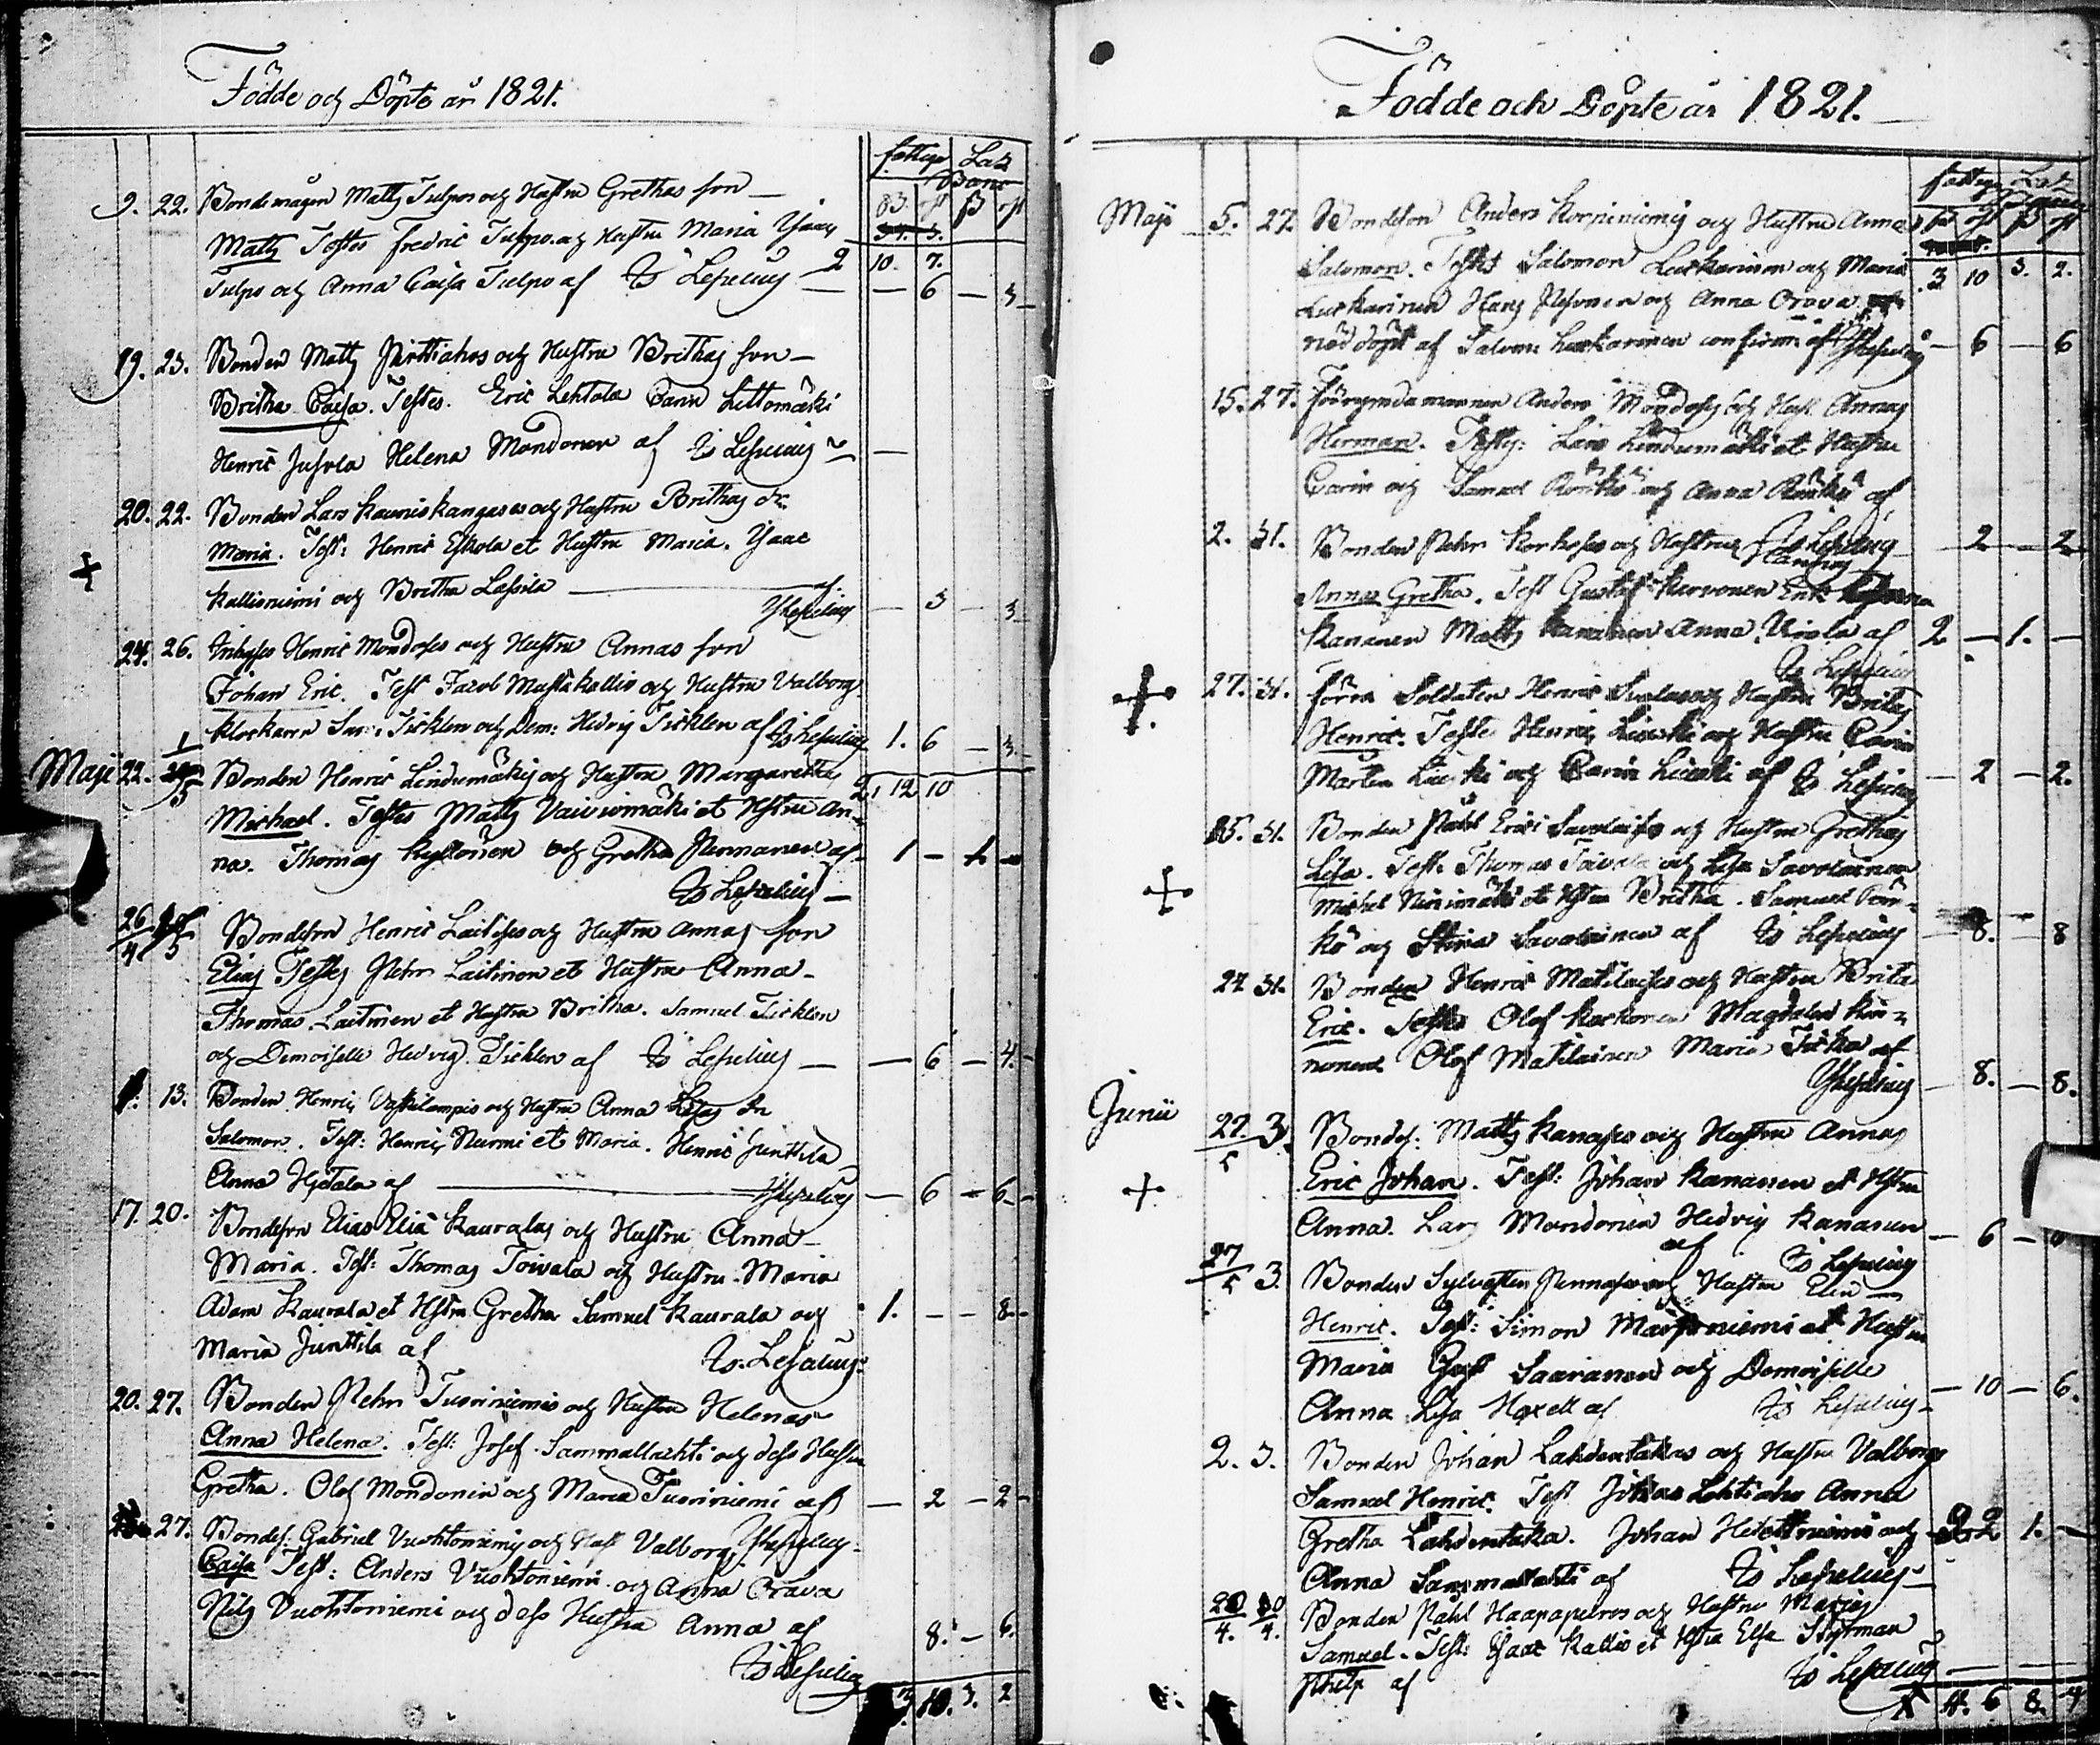 Födde och Döpte år 1821.
fattiga Laz
Banco
9. 22. Bondemågen Matts Tulpos och Hustru Grethas son
Matts Testes Fredric Tulppo och Hustru Maria Ysaac
Tulpo och Anna Caisa Tulpo af Is Lepelius 2 10. 7.
— 6 — 3
19. 23. Bonden Matts Perttiahos och Hustru Brithas son
Britha Caisa. Testes. Eric Lehtola Carin Littomäki
Henric Juhola Helena Mondonen af Is Lepelius —
20. 22. Bonden Lars Kauniskangases och Hustru Brithas dr.
Maria. Test: Henric Eskola et Hustru Maria. Ysaac
Kallioniemi och Britha Lassila af
Is Lepelius — 3 — 3
24. 26. Inhyses Henric Mondoses och Hustru Annas son
Johan Eric. Test Jacob Mustakallio och Hustru Valborg
Klockaren Sam: Ticklen och Dem: Hedvig Ticklen af Is Lepelius 1. 6 — 3
Maji 22. 1/5 Bonden Henric Lindumäkis och Hustru Margaretha 2. 12 10
Michael. Testes Matts Vaiviomäki et Hstru An-
na. Thomas Kyllönen och Gretha Pennanen af 1 — 1 —
Is Lepelius
26/4 Bondeson Henric Laitises och Hustru Annas son
Elias Testes Pehr Laitinen et Hustru Anna
Thomas Laitinen et Hustru Britha. Samuel Ticklen
och Demoiselle Hedvig Ticklen af Is Lepelius — 6 — 4
13. Bonden Henric Vaskilampis och Hustru Anna Lisas Sn
Salomon. Test: Henric Nurmi et Maria. Henric Junttila
Anna Hietala af Is Lepelius — 6 — 6
17. 20. Bondeson Elias Elia Kauralas och Hustru Anna
Maria. Test: Thomas Toivala och Hustru Maria
Adam Kaurala et Hstru Gretha Samuel Kaurala och 1. — — 8
Maria Junttila af Is. Lepelius
20. 27. Bonden Pehr Tuoriniemis och Hustru Helenas
Anna Helena. Test: Josef Sammallachti och dess Hustru
Gretha. Olof Mondonen och Maria Tuoriniemi af — 2 — 2
Is Lepelius
27. Bondes: Gabriel Vuohtoniemis och Hust Valborgs
Caisa Test: Anders Vuohtoniemi och Anna Orava
Nils Vuohtoniemi och dess Hustru Anna af 8. — 6.
Is Lepelius
3. 10. 3. 2
Födde och Döpte år 1821.
fattiga Laz
Maji 5. 27. Bondeson Anders Korpiniemis och Hustru Annas
Salomon. Testes Salomon Leskarinen och Maria 3 10 3. 2.
Luskarinen Hans Pesonen och Anna Orava
nöddöpt af Salom: Leskarinen confirm: af Is Lepelius — 6 — 6
15. 27. Anders Mondoses och Hust. Annas
Herman. Testes: Lars Lindumäki et Hustru
Carin och Samuel Rönkö och Anna Rönkö af
Is Lepelius — 2 — 2
2. 31. Bonden Pehr Korhoses och Hustrus
Anna Gretha. Test Gustaf Kervonen
Kananen Matts Kananen Anna Virola af 2 — 1. —
Is Lepelius
27. 31. förra Soldaten Henric och Hustru Britas
Henric. Testes Henric Liuski och Hustru Carin
Marten Liuski och Carin Liuski af Is Lepelius — 2 — 2.
25. 31. Bonden Påhl Erici Savolaises och Hustru Grethas
Lisa. Test: Thomas Toivola och Lisa Savolainen
Michel Niinimäki et Hstru Britha. Samuel Törr-
kö och Stina Savolainen af Is Lepelius 8. 8
24 31. Bonden Henric Matilaises och Hustru Brita
Eric. Testes Olof Korhonen Magdalena Kin-
nunen Olof Matilainen Maria af
Is Lepelius — 8. — 8.
Junii 22/5 3. Bondes: Matts Kanases och Hustru Annas
Eric Johan. Test: Johan Kananen et Hstru
Anna. Lars Mondonen Hedvig Kananen — 6 —
af Is Lepelius
27/5 3. Bonden Sylvester Pennases och Hustru Elin
Henric. Test: Simon et Hustru
Maria Gust Saaranen och Demoiselle
Anna Lisa Hoxell af Is Lepelius — 10 — 6.
2. 3. Bonden Johan Lahdentakas och Hustru Valborgs
Samuel Henric. Test Johan Lehtiaho Anna
Gretha Lahdentaka. Johan Hetteniemi och 2 1. —
Anna Sammallahti af Is Lepelius
20/4. 30/4. Bonden Påhl Haapapuros och Hustru Marias
Samuel. Test: Ysaac Kallio et Hstru Elsa Styrman
af Is Lepelius
4. 6 8. 4